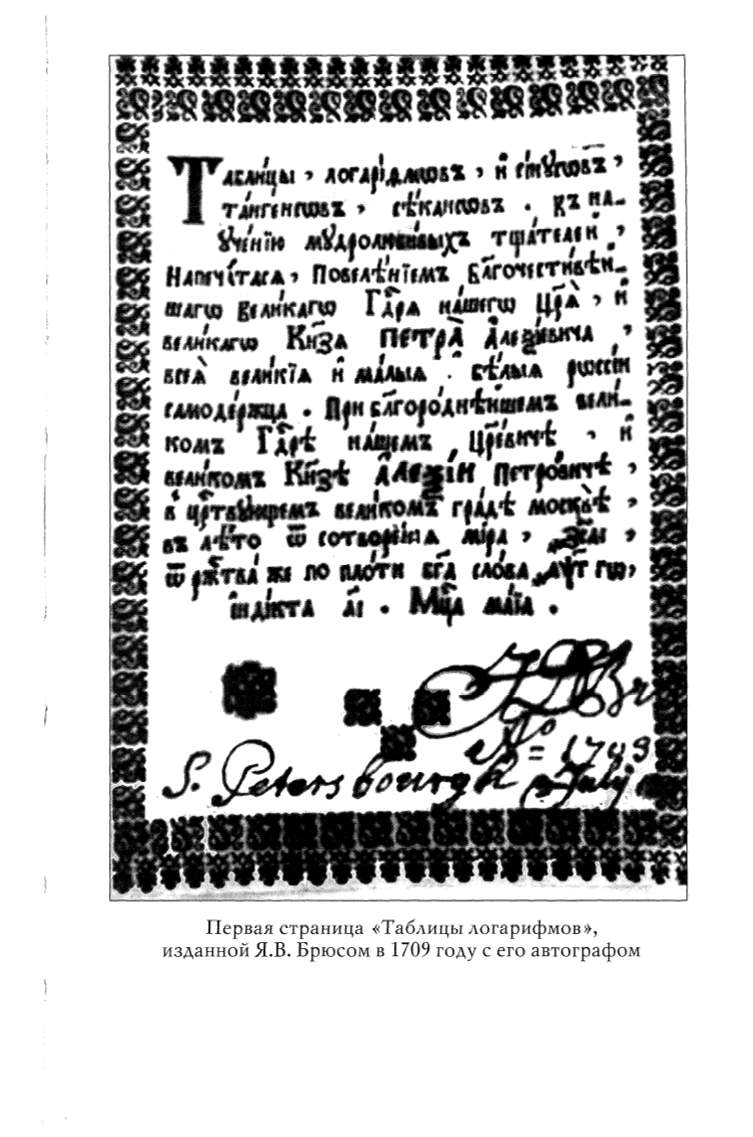 Таблицы, логариѳмѡвъ, и сїнусѡвъ,
тангенсѡвъ, сѣкансѡвъ. къ на-
ученїю мудролюбивыхъ тщателей,
Напечатася, Повелѣнїемъ Благочестивѣи-
шагѡ великагѡ Гдⷭ҇ря нашегѡ Цр҃я, и
великагѡ Кнѧ҃зя ПЕТРА Алеѯїевича,
всеѧ великїѧ и малыѧ и бѣлыѧ россїи
самодержца. При благороднѣйшемъ вели-
комъ Гдⷭ҇рѣ нашемъ Цр҃евичѣ, и
великомъ Кнѧ҃зѣ АЛЕѮІИ Петровичѣ,
в црⷭ҇твующемъ великомъ градѣ москвѣ
въ лѣто ѿ сотворенїѧ мїра,
ѿ ржⷭ҇тва же по плоти бг҃а слова, гѡ,
їндїкта а҃і. Мцⷭ҇а маїа.
No = 1709
S. Petersbourgh Julij
Первая страница «Таблицы логарифмов»,
изданной Я.В. Брюсом в 1709 году с его автографом